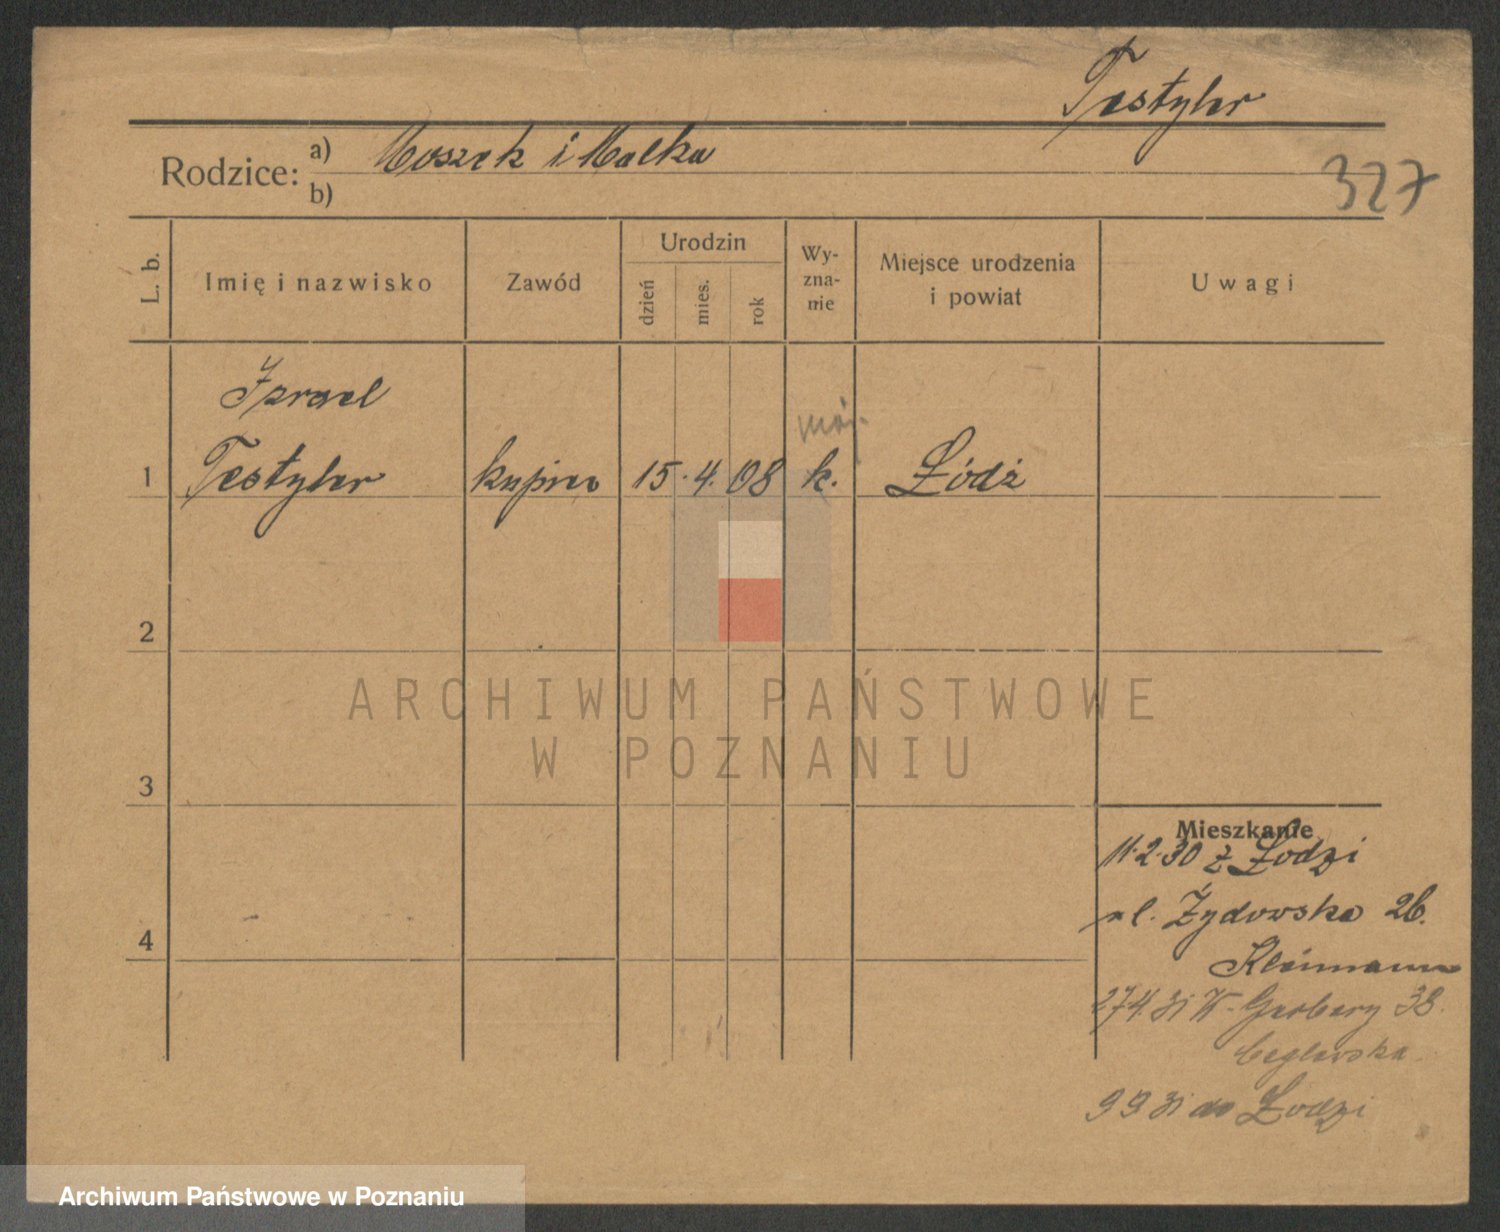 Testyler
Rodzice: a) Moszek i Malka
b)
327
L. b.
Imię i nazwisko
Zawód
Urodzin
dzień
mies.
rok
Wy-
zna-
nie
Miejsce urodzenia
i powiat
Uwagi
Izrael
moj.
1 Testyler kupiec 15. 4. 08 k. Łódź
2
3
4
Mieszkanie
11.2.30 z Łodzi
ul. Żydowska 26.
Kleimann
27.4.31 W. Garbary 38.
Ceglewska
9 9 31 do Łodzi
ARCHIWUM PAŃSTWOWE
W POZNANIU
Archiwum Państwowe w Poznaniu